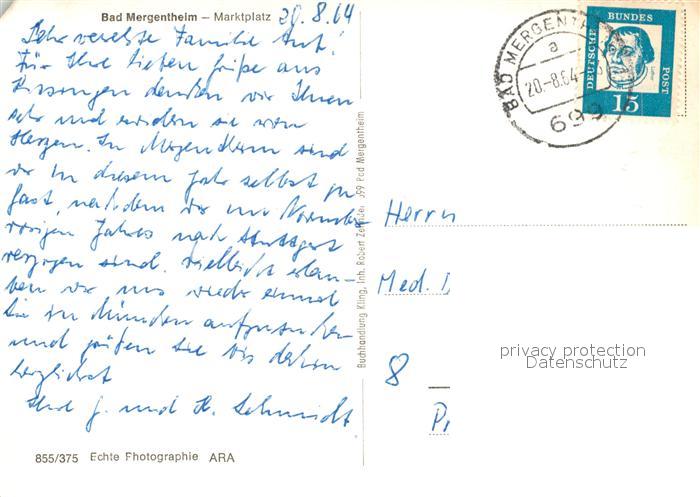 Bad Mergentheim – Marktplatz 20.8.64
Sehr verehrte Familie
Für Ihre lieben Grüße aus
Kissingen danken wir Ihnen
sehr und erwidern sie von
Herzen. In Mergentheim sind
wir in diesem Jahr selbst zu
Gast, nachdem wir im November
vorigen Jahres nach Stuttgart
verzogen sind. Vielleicht erlau-
ben wir uns wieder einmal
Sie in München aufzusuchen
und grüßen Sie bis dahin
herzlichst
Ihre J. und H. Schmidt
855/375 Echte Fhotographie ARA
Buchhandlung Kling, Inh. Robert 699 Bad Mergentheim
BAD MERGENTH
a
20.-8.64
699
DEUTSCHE BUNDES POST
15
Herrn
Med. D
8
privacy protection
Datenschutz